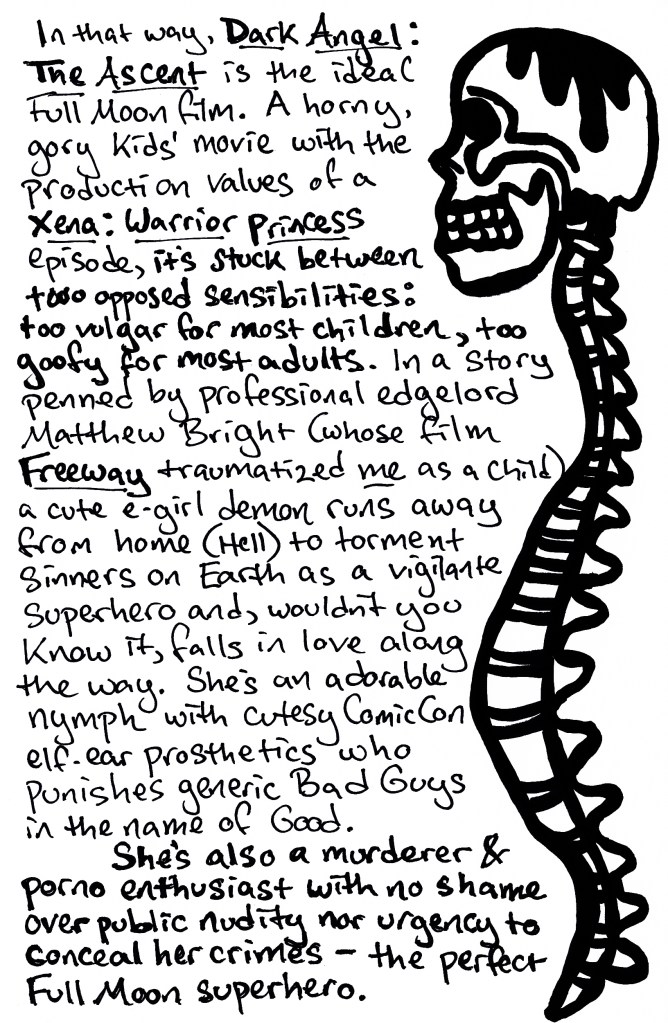 In that way, Dark Angel:
The Ascent is the ideal
Full Moon film. A horny,
gory kids' movie with the
production values of a
Xena: Warrior Princess
episode, it's stuck between
two opposed sensibilities:
too vulgar for most children, too
goofy for most adults. In a story
penned by professional edgelord
Matthew Bright (whose film
Freeway traumatized me as a child)
a cute e-girl demon runs away
from home (Hell) to torment
sinners on Earth as a vigilante
superhero and, wouldn't you
know it, falls in love along
the way. She's an adorable
nymph with cutesy ComicCon
elf-ear prosthetics who
punishes generic Bad Guys
in the name of Good.
She's also a murderer &
porno enthusiast with no shame
over public nudity nor urgency to
conceal her crimes – the perfect
Full Moon superhero.